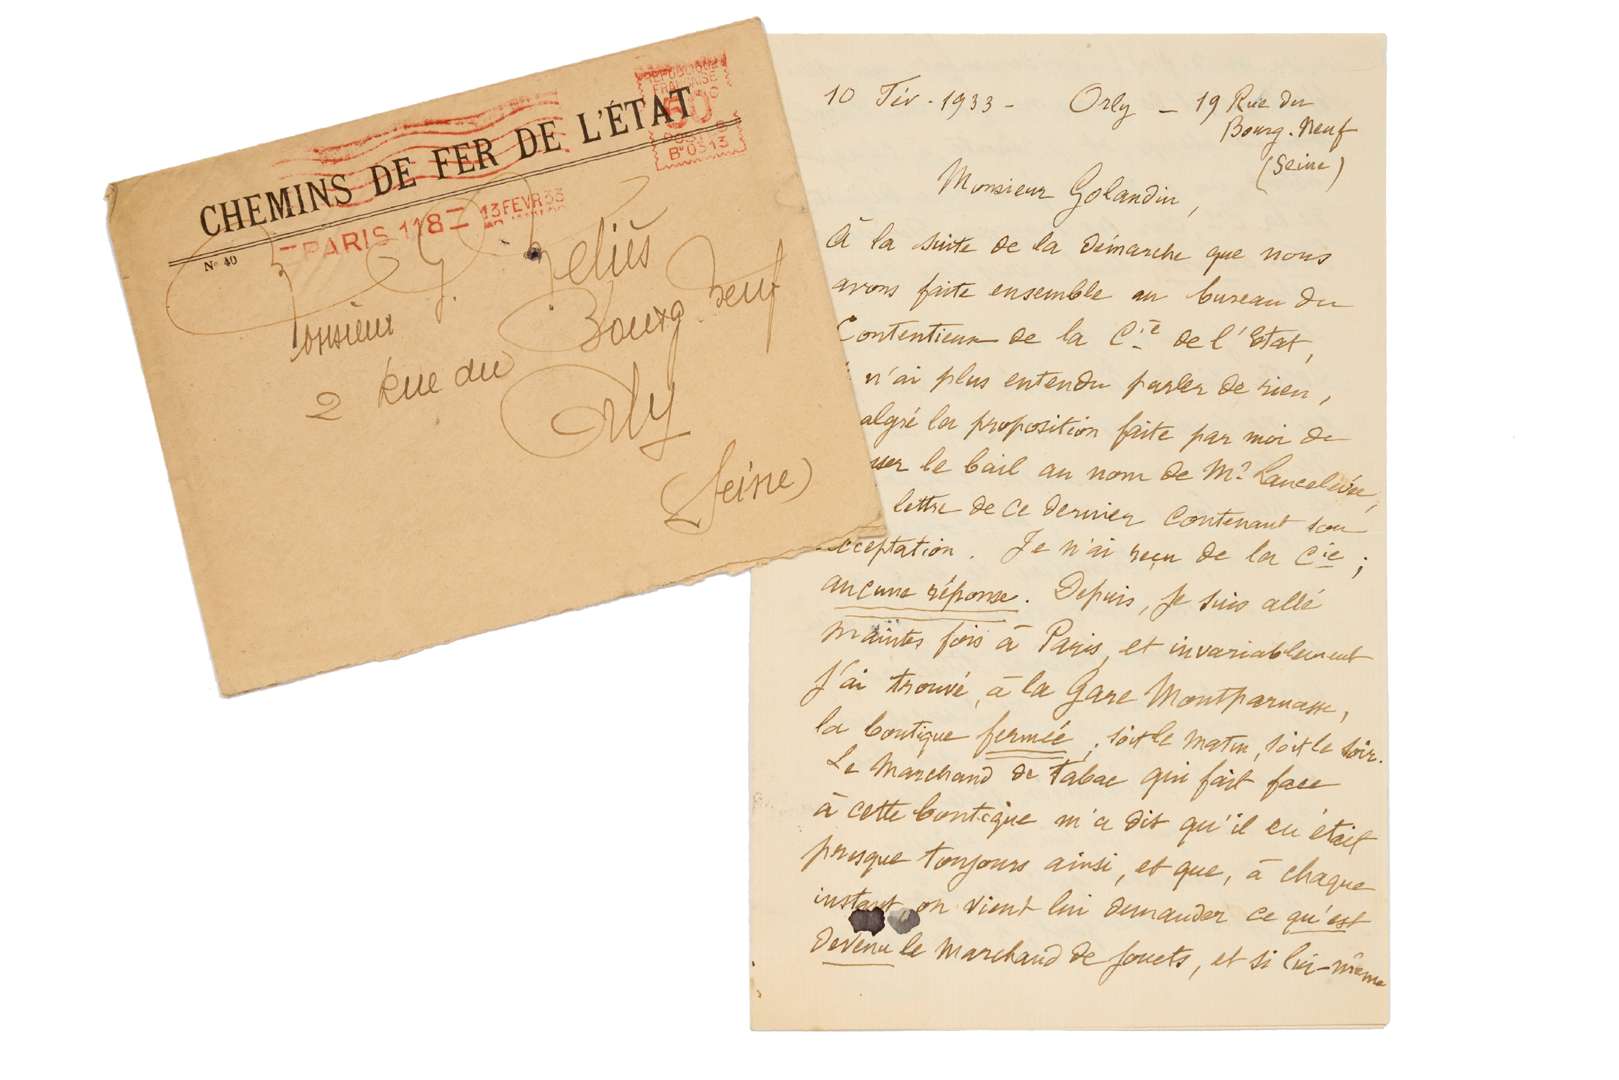 CHEMINS DE FER DE L'ÉTAT
RÉPUBLIQUE
FRANÇAISE
50
POSTES
B. 0313
PARIS 118
13 FEVR 33
N° 40
Monsieur G. Méliès
2 Rue du Bourg Neuf
Orly
(Seine)
10 Fév. 1933 - Orly - 19 Rue du
Bourg-Neuf
(Seine)
Monsieur Golandin,
À la suite de la démarche que nous
avons faite ensemble au bureau du
Contentieux de la Cie de l'Etat,
n'ai plus entendu parler de rien,
algré la proposition faite par moi de
sser le bail au nom de Mr Lancelevée,
lettre de ce dernier contenant son
cceptation. Je n'ai reçu de la Cie ;
aucune réponse. Depuis, je suis allé
maintes fois à Paris, et invariablement
j'ai trouvé, à la Gare Montparnasse,
la boutique fermée, soit le matin, soit le soir.
Le marchand de tabac qui fait face
à cette boutique m'a dit qu'il en était
presque toujours ainsi, et que, à chaque
instant, on vient lui demander ce qu'est
devenu le marchand de jouets, et si lui-même